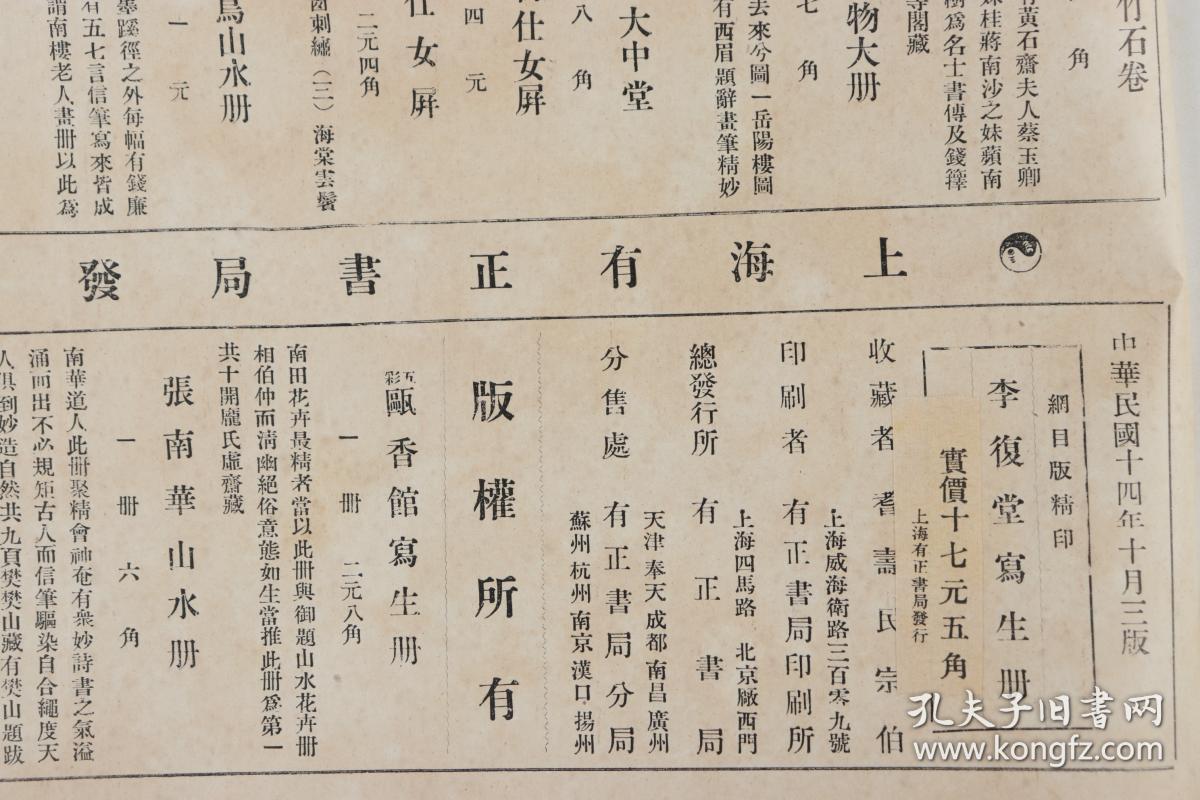 竹石卷
角
有黃石齋夫人蔡玉卿
妹桂蔣南沙之妹蘋南
樹爲名士書傳及錢籜
寺閣藏
物大册
七角
去來兮圖一岳陽樓圖
有西眉題辭畫筆精妙
大中堂
八角
仕女屛
四元
仕女屛
二元四角
刺繡（二）海棠雲鬢
鳥山水册
一元
墨蹊徑之外每幅有錢廉
者五七言信筆寫來皆成
謂南樓老人畫册以此爲
上海有正書局發
中華民國十四年十月三版
網目版精印
李復堂寫生册
實價十七元五角
上海有正書局發行
收藏者 耆壽民宗伯
上海威海衛路三百零九號
印刷者 有正書局印刷所
上海四馬路 北京廠西門
總發行所 有正書局
天津奉天成都南昌廣州
分售處 有正書局分局
蘇州杭州南京漢口揚州
版權所有
五彩甌香館寫生册
一册 二元八角
南田花卉最精者當以此册與御題山水花卉册
相伯仲而淸幽絕俗意態如生當推此册爲第一
共十開龐氏虛齋藏
張南華山水册
一册 六角
南華道人此册聚精會神奄有衆妙詩書之氣溢
涌而出不必規矩古人而信筆驅染自合繩度天
人俱到妙造自然共九頁樊樊山藏有樊山題跋
孔夫子旧书网
www.kongfz.com